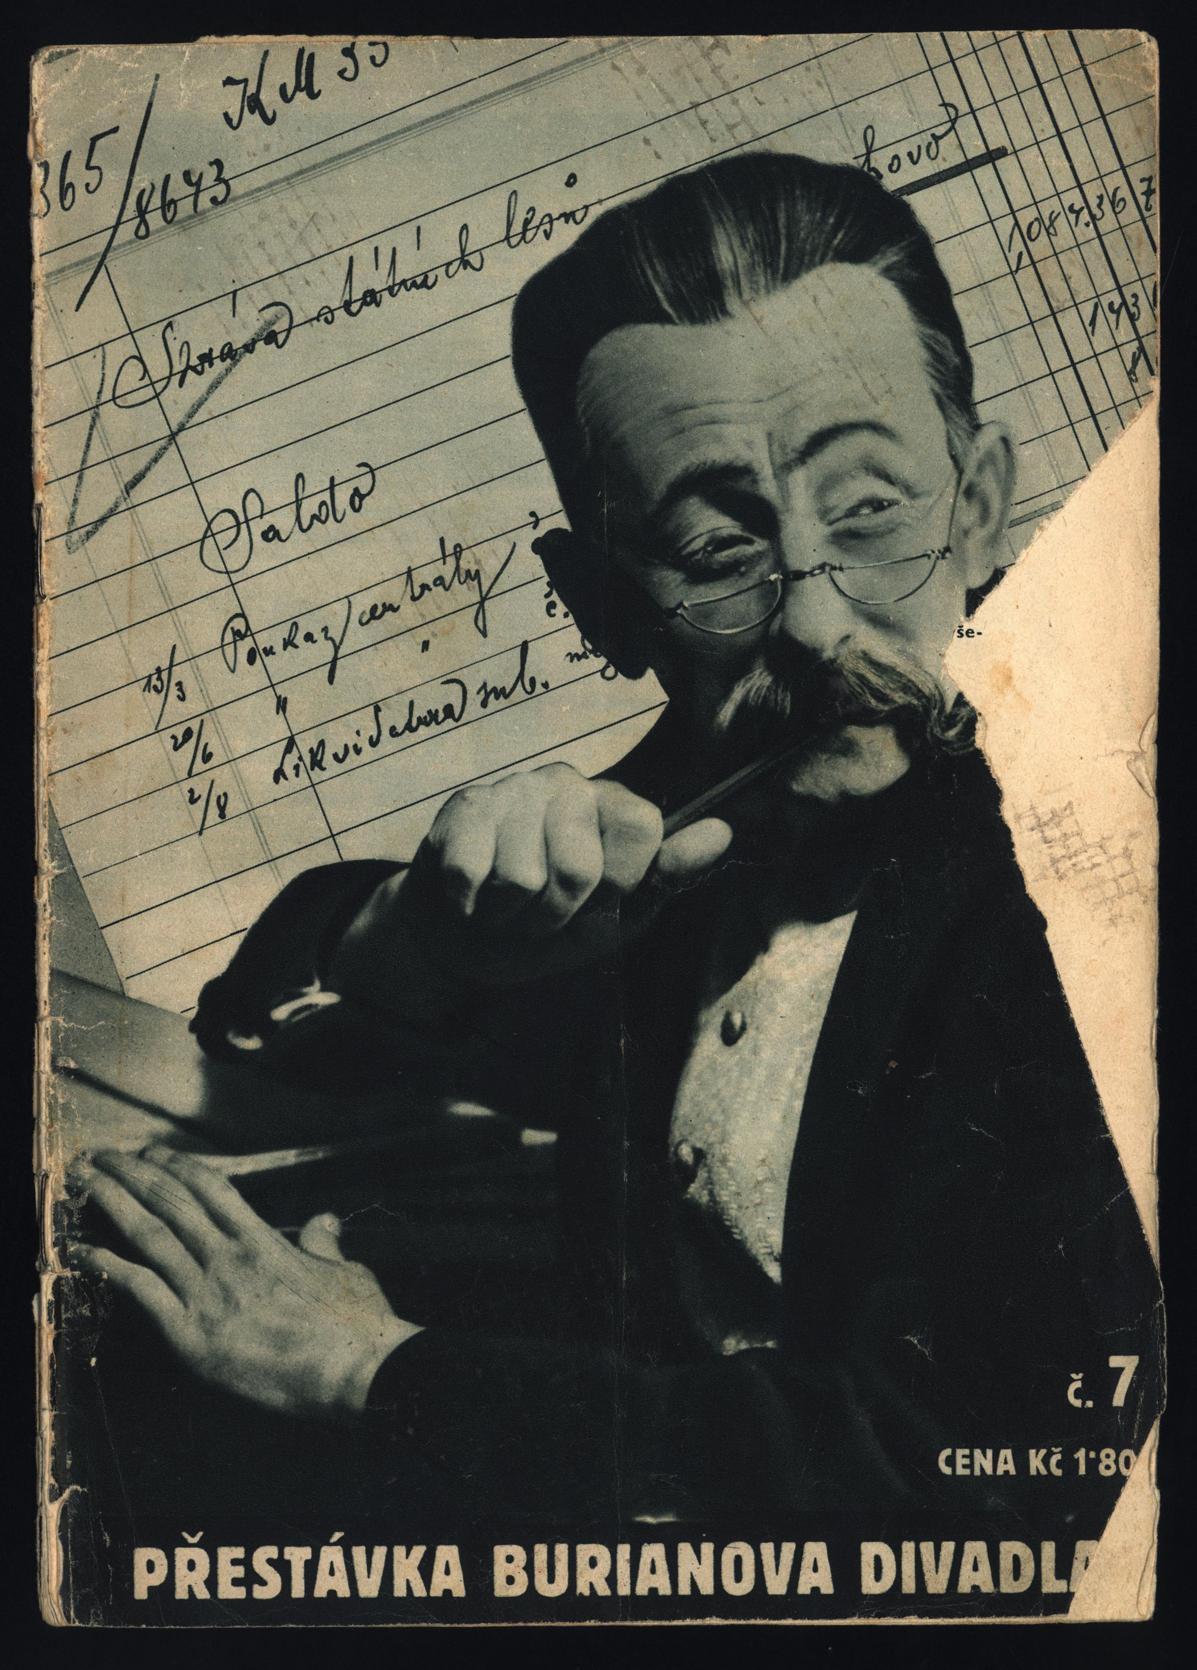 KM 33
365/8643
Správa státních lesů
1084.36 7
143
Saldo
13/3 Poukaz centrály
č.
še-
20/6 " "
2/8 Likvidatura sub.
č. 7
CENA Kč 1·80
PŘESTÁVKA BURIANOVA DIVADLA